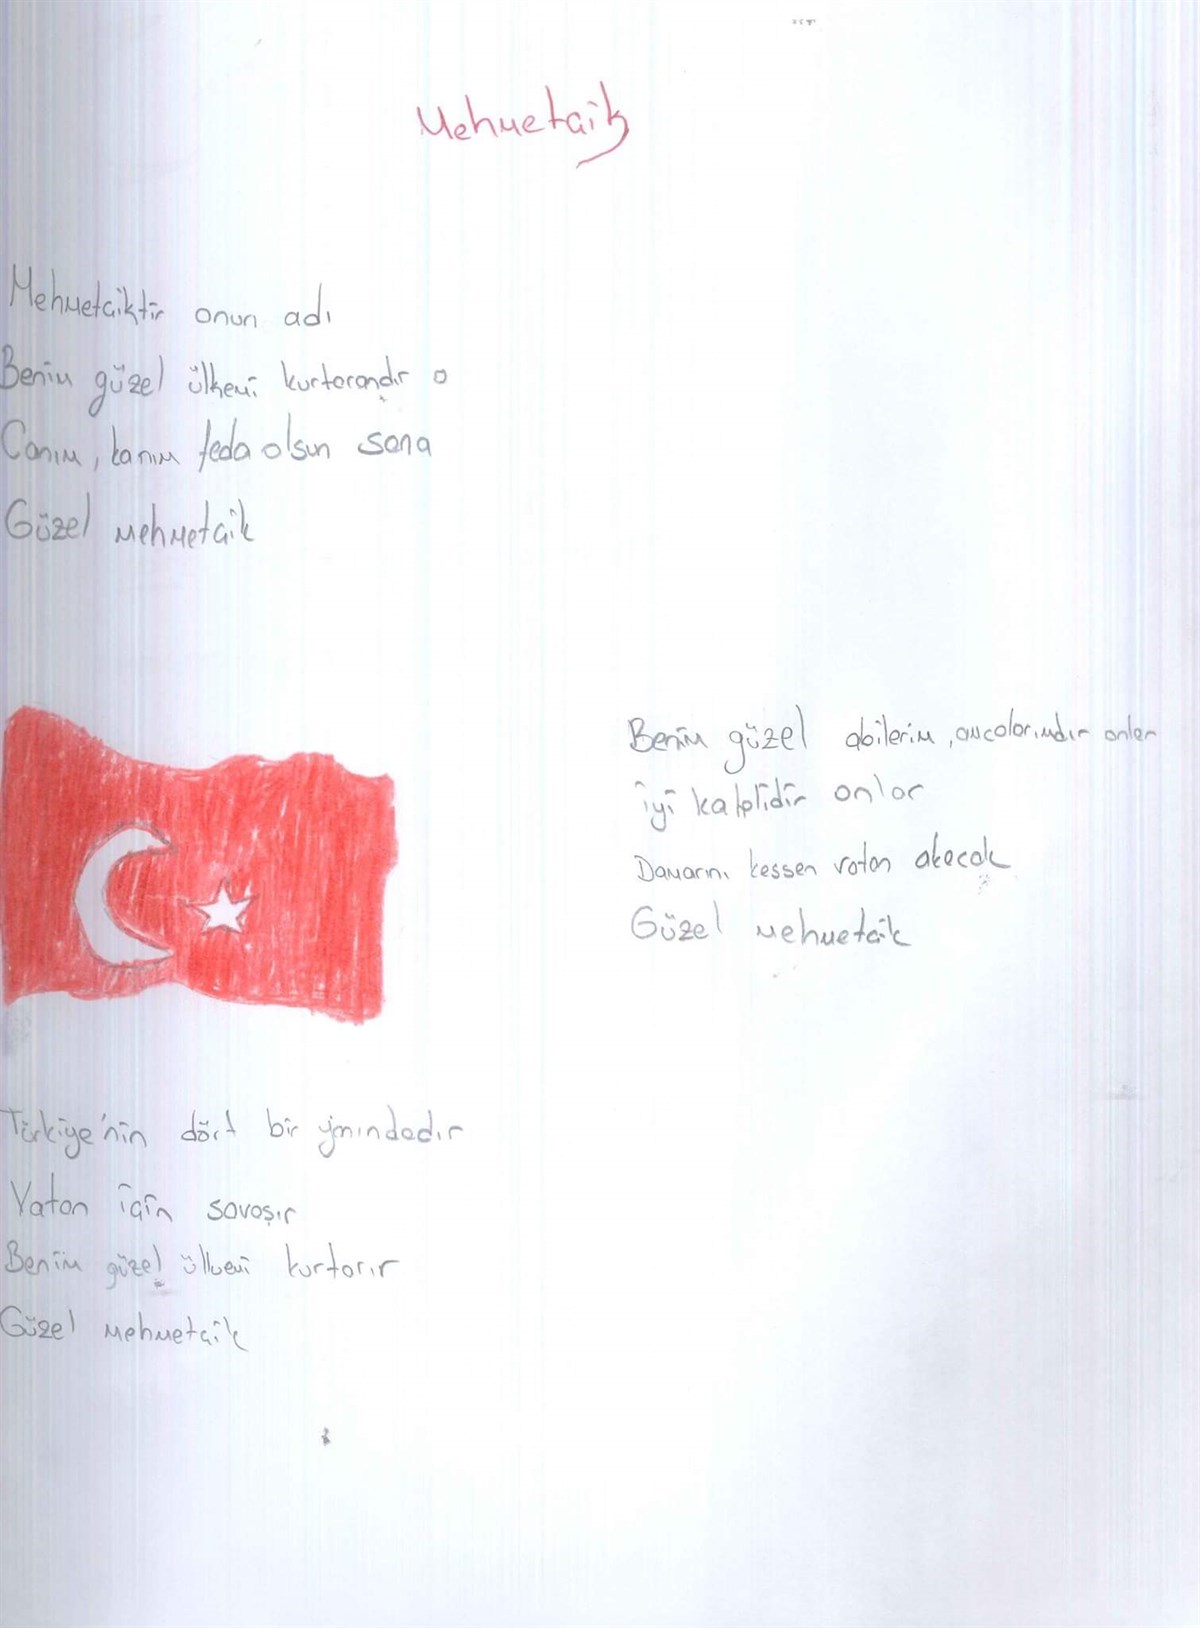 Mehmetçik
Mehmetçiktir onun adı
Benim güzel ülkemi kurtarandır o
Canım, kanım feda olsun sana
Güzel mehmetçik
Benim güzel abilerim, amcalarımdır onlar
iyi kalplidir onlar
Damarını kessen vatan akacak
Güzel mehmetçik
Türkiye'nin dört bir yanındadır
Vatan için savaşır
Benim güzel ülkemi kurtarır
Güzel mehmetçik